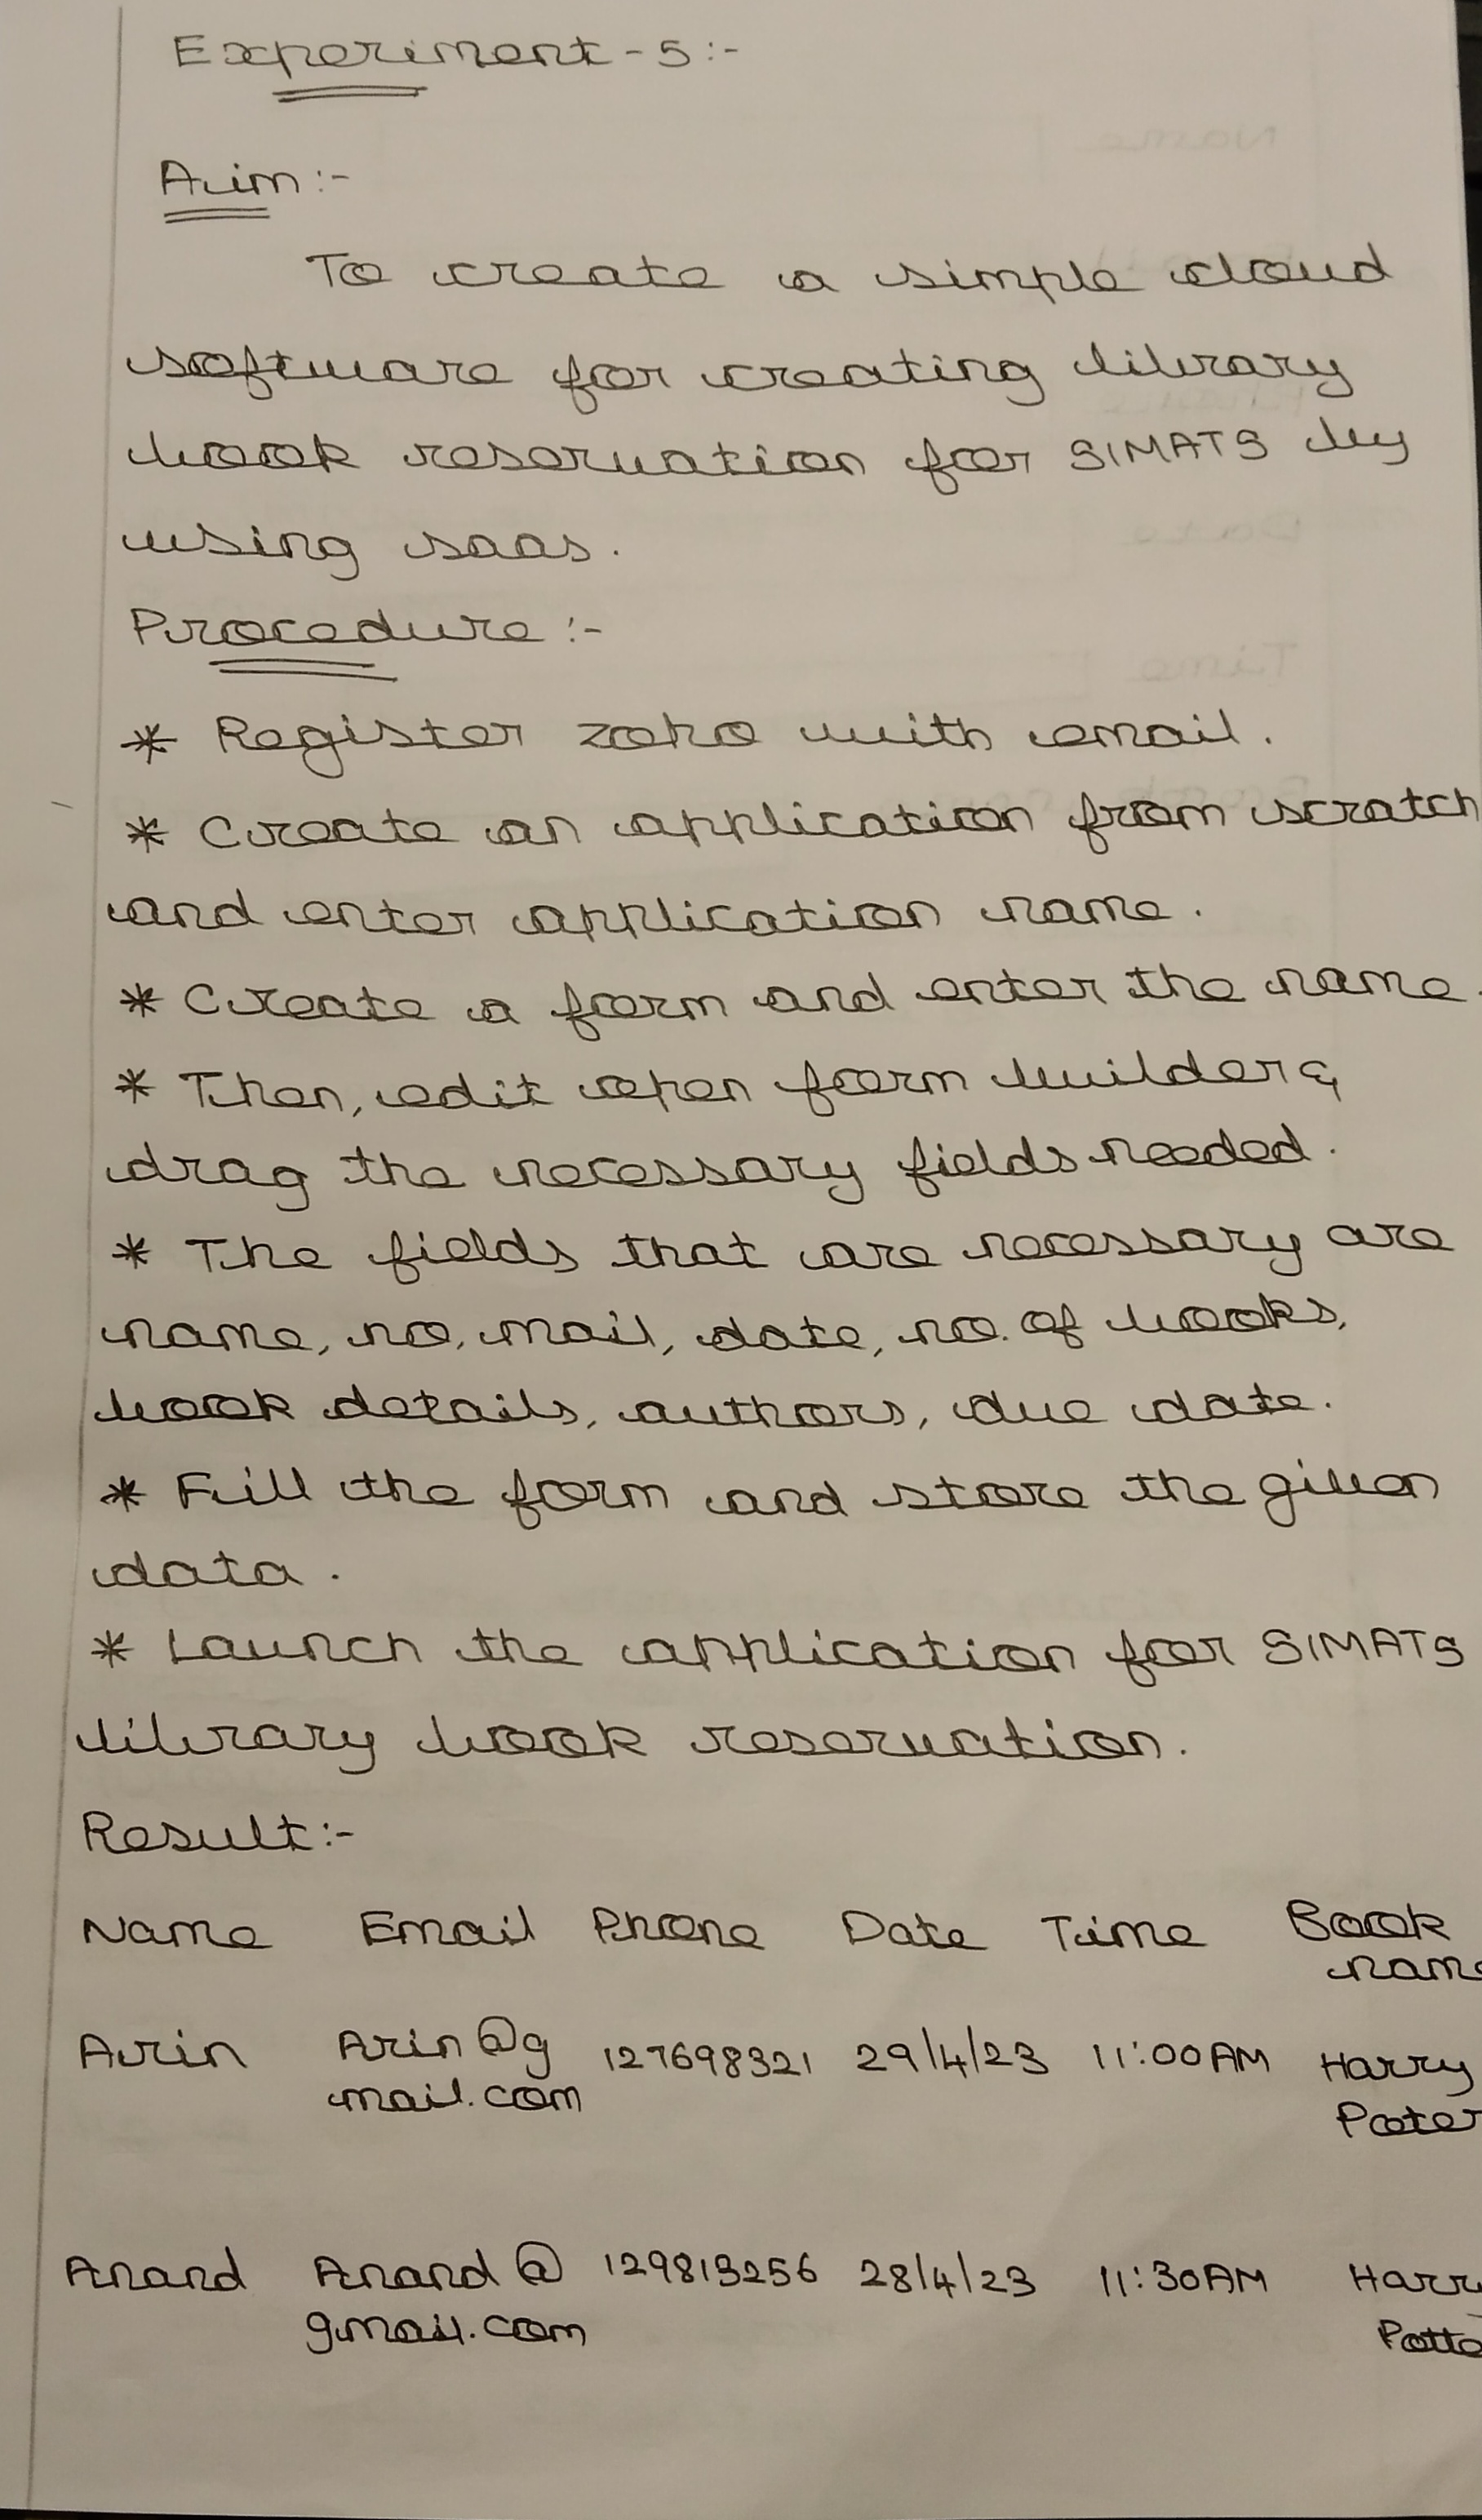 Experiment - 5 :-
Aim :-
To create a simple cloud
software for creating library
book reservation for SIMATS by
using saas.
Procedure :-
* Register zoho with email.
* Create an application from scratch
and enter application name.
* Create a form and enter the name.
* Then, edit open form builder &
drag the necessary fields needed.
* The fields that are necessary are
name, no, mail, date, no. of books,
book details, authors, due date.
* Fill the form and store the given
data.
* Launch the application for SIMATS
library book reservation.
Result :-
Name Email Phone Date Time Book
name
Arin Arin@g 127698321 29/4/23 11:00AM Harry
mail.com Poter
Anand Anand@ 129813256 28/4/23 11:30AM Harr
gmail.com Potte